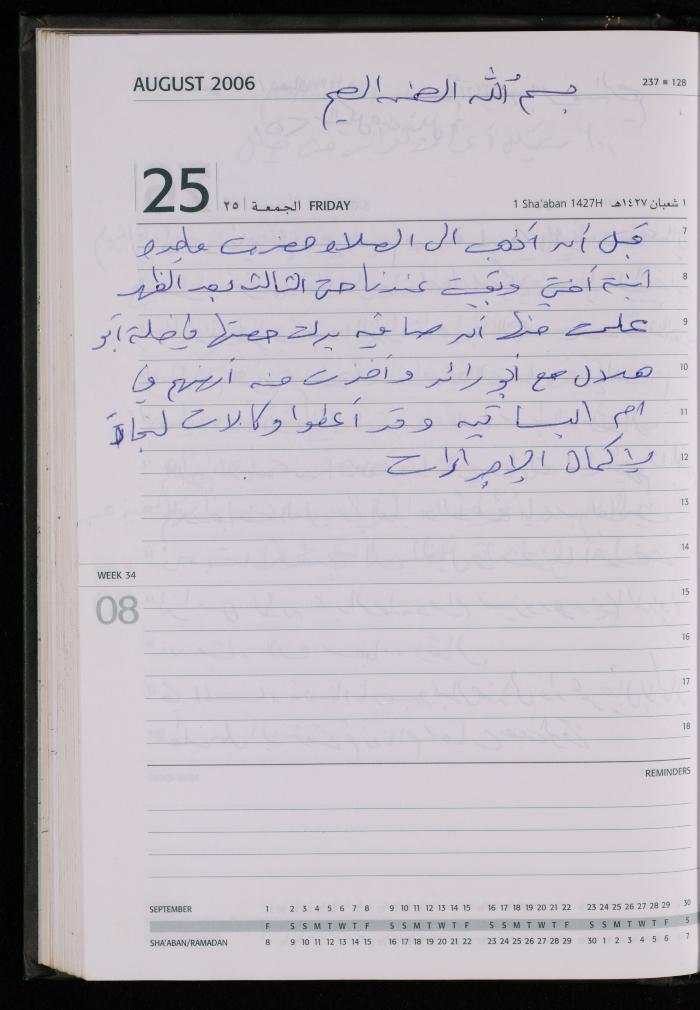 AUGUST 2006
بسم الله الرحمن الرحيم
237 ▪ 128
25 ٢٥ الجمعة FRIDAY
1 Sha'aban 1427H ١ شعبان ١٤٢٧هـ
7 قبل أن أذهب الى الصلاة حضرت ماجده
8 ابنة أختي وبقيت عندنا حتى الثالثة بعد الظهر
9 علمت منها أن صافيه بدلت حصتها فاضلة أبو
10 هلال مع أبو رائد وأخذت منه أرضهم في
11 ام البساتين وقد أعطوا وكالات لنجاة
12 لإكمال الإجراءات
13
14
WEEK 34
15
08
16
17
18
REMINDERS
SEPTEMBER 1 2 3 4 5 6 7 8 9 10 11 12 13 14 15 16 17 18 19 20 21 22 23 24 25 26 27 28 29 30
F S S M T W T F S S M T W T F S S M T W T F S S M T W T F S
SHA'ABAN/RAMADAN 8 9 10 11 12 13 14 15 16 17 18 19 20 21 22 23 24 25 26 27 28 29 30 1 2 3 4 5 6 7